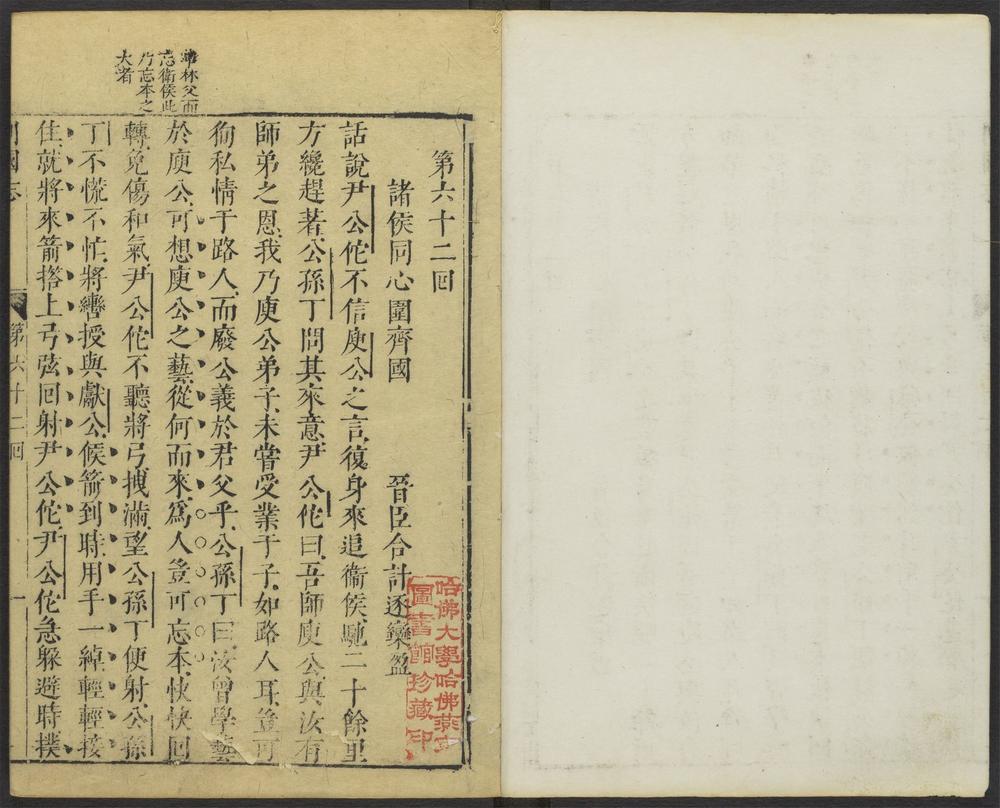 第六十二回
諸侯同心圍齊國　晉臣合計逐欒盈
話說尹公佗不信庾公之言復身來追衞侯馳二十餘里
方纔趕著公孫丁問其來意尹公佗曰吾師庾公與汝有
師弟之恩我乃庾公弟子未嘗受業于子如路人耳豈可
徇私情于路人而廢公義於君父乎公孫丁曰汝曾學藝
於庾公可想庾公之藝從何而來爲人豈可忘本快快回
轉免傷和氣尹公佗不聽將弓拽滿望公孫丁便射公孫
丁不慌不忙將轡授與獻公候箭到時用手一綽輕輕接
住就將來箭搭上弓弦回射尹公佗尹公佗急躱避時撲
林父而
忘衞侯此
乃忘本之
大者
國志
第六十二回
一
哈佛大學哈佛燕京
圖書館珍藏印